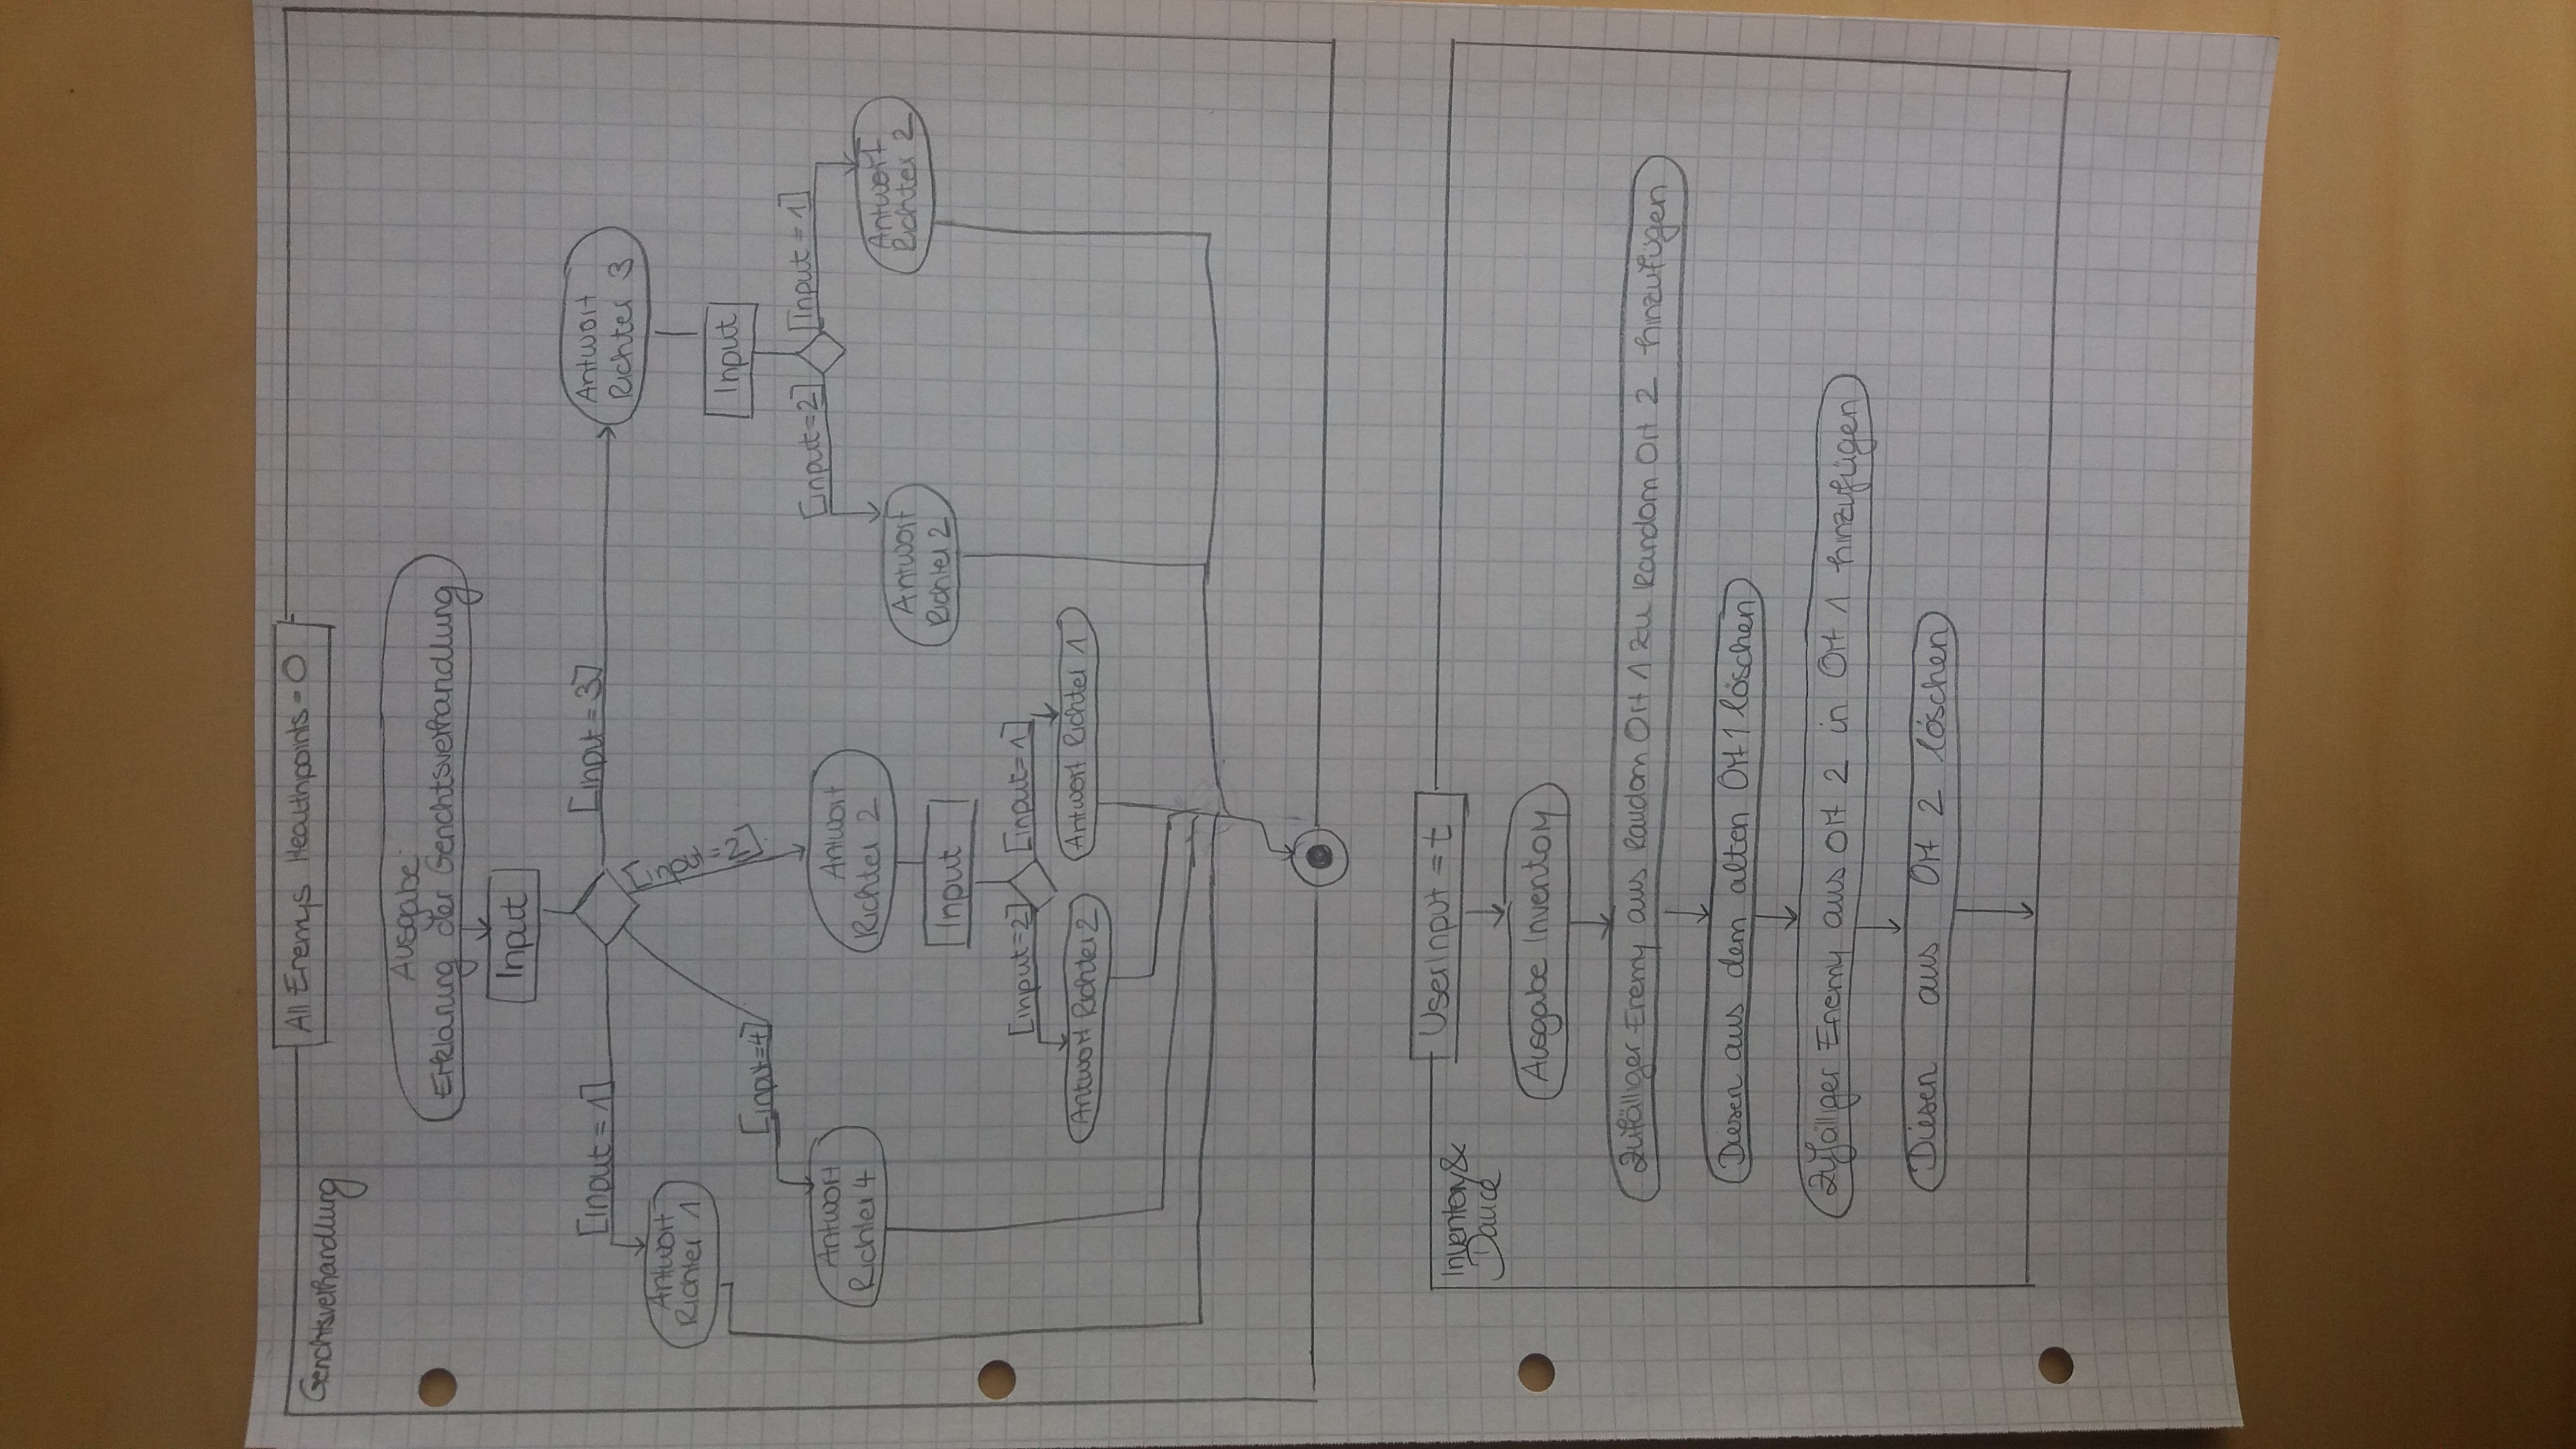 All Enemys Healthpoints = 0
Gerichtsverhandlung
Ausgabe:
Erklärung der Gerichtsverhandlung
Input
[input = 1]
[input = 3]
Antwort
Richter 3
Antwort
Richter 1
[input = 2]
Input
[input=4]
[input=2]
[input = 1]
Antwort
Richter 4
Antwort
Richter 2
Antwort
Richter 2
Antwort
Richter 2
Input
[input=2]
[input=1]
Antwort Richter 2
Antwort Richter 1
UserInput = t
Inventory &
Dance
Ausgabe Inventory
Zufälliger Enemy aus Random Ort 1 zu Random Ort 2 hinzufügen
Diesen aus dem alten Ort 1 löschen
Zufälliger Enemy aus Ort 2 in Ort 1 hinzufügen
Diesen aus Ort 2 löschen